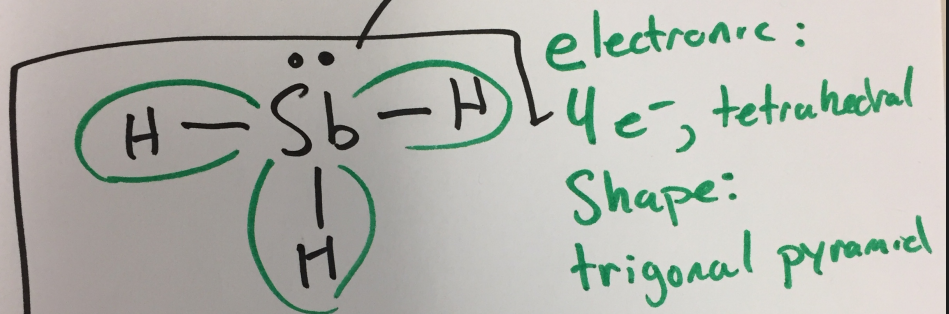 H — Sb — H
H
electronic:
4 e⁻, tetrahedral
Shape:
trigonal pyramid